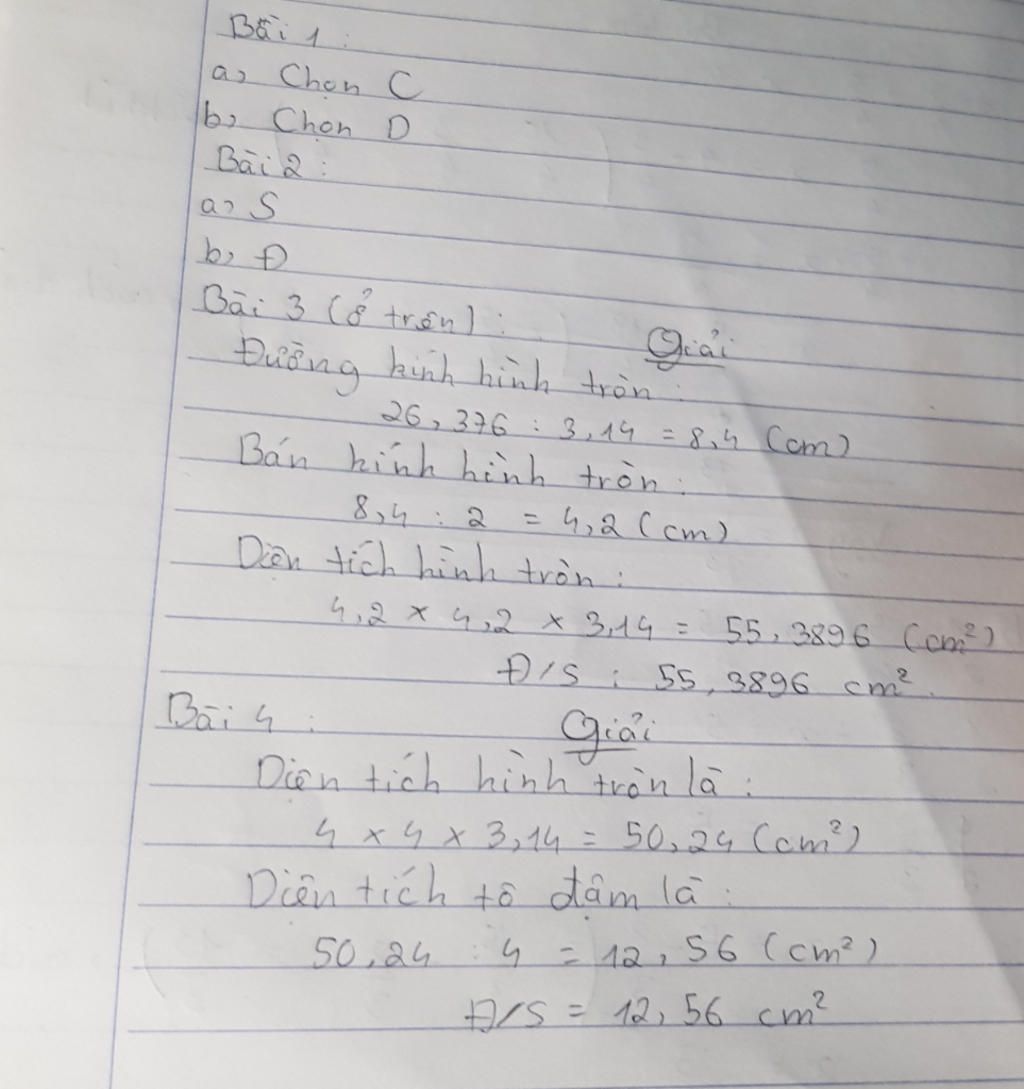 Bài 1 :
a, Chọn C
b, Chọn D
Bài 2 :
a, S
b, Đ
Bài 3 (ở trên) :
Giải
Đường kính hình tròn :
26,376 : 3,14 = 8,4 (cm)
Bán kính hình tròn :
8,4 : 2 = 4,2 (cm)
Diện tích hình tròn :
4,2 × 4,2 × 3,14 = 55,3896 (cm²)
Đ/S : 55,3896 cm².
Bài 4 :
Giải
Diện tích hình tròn là :
4 × 4 × 3,14 = 50,24 (cm²)
Diện tích tô đậm là :
50,24 : 4 = 12,56 (cm²)
Đ/S = 12,56 cm²